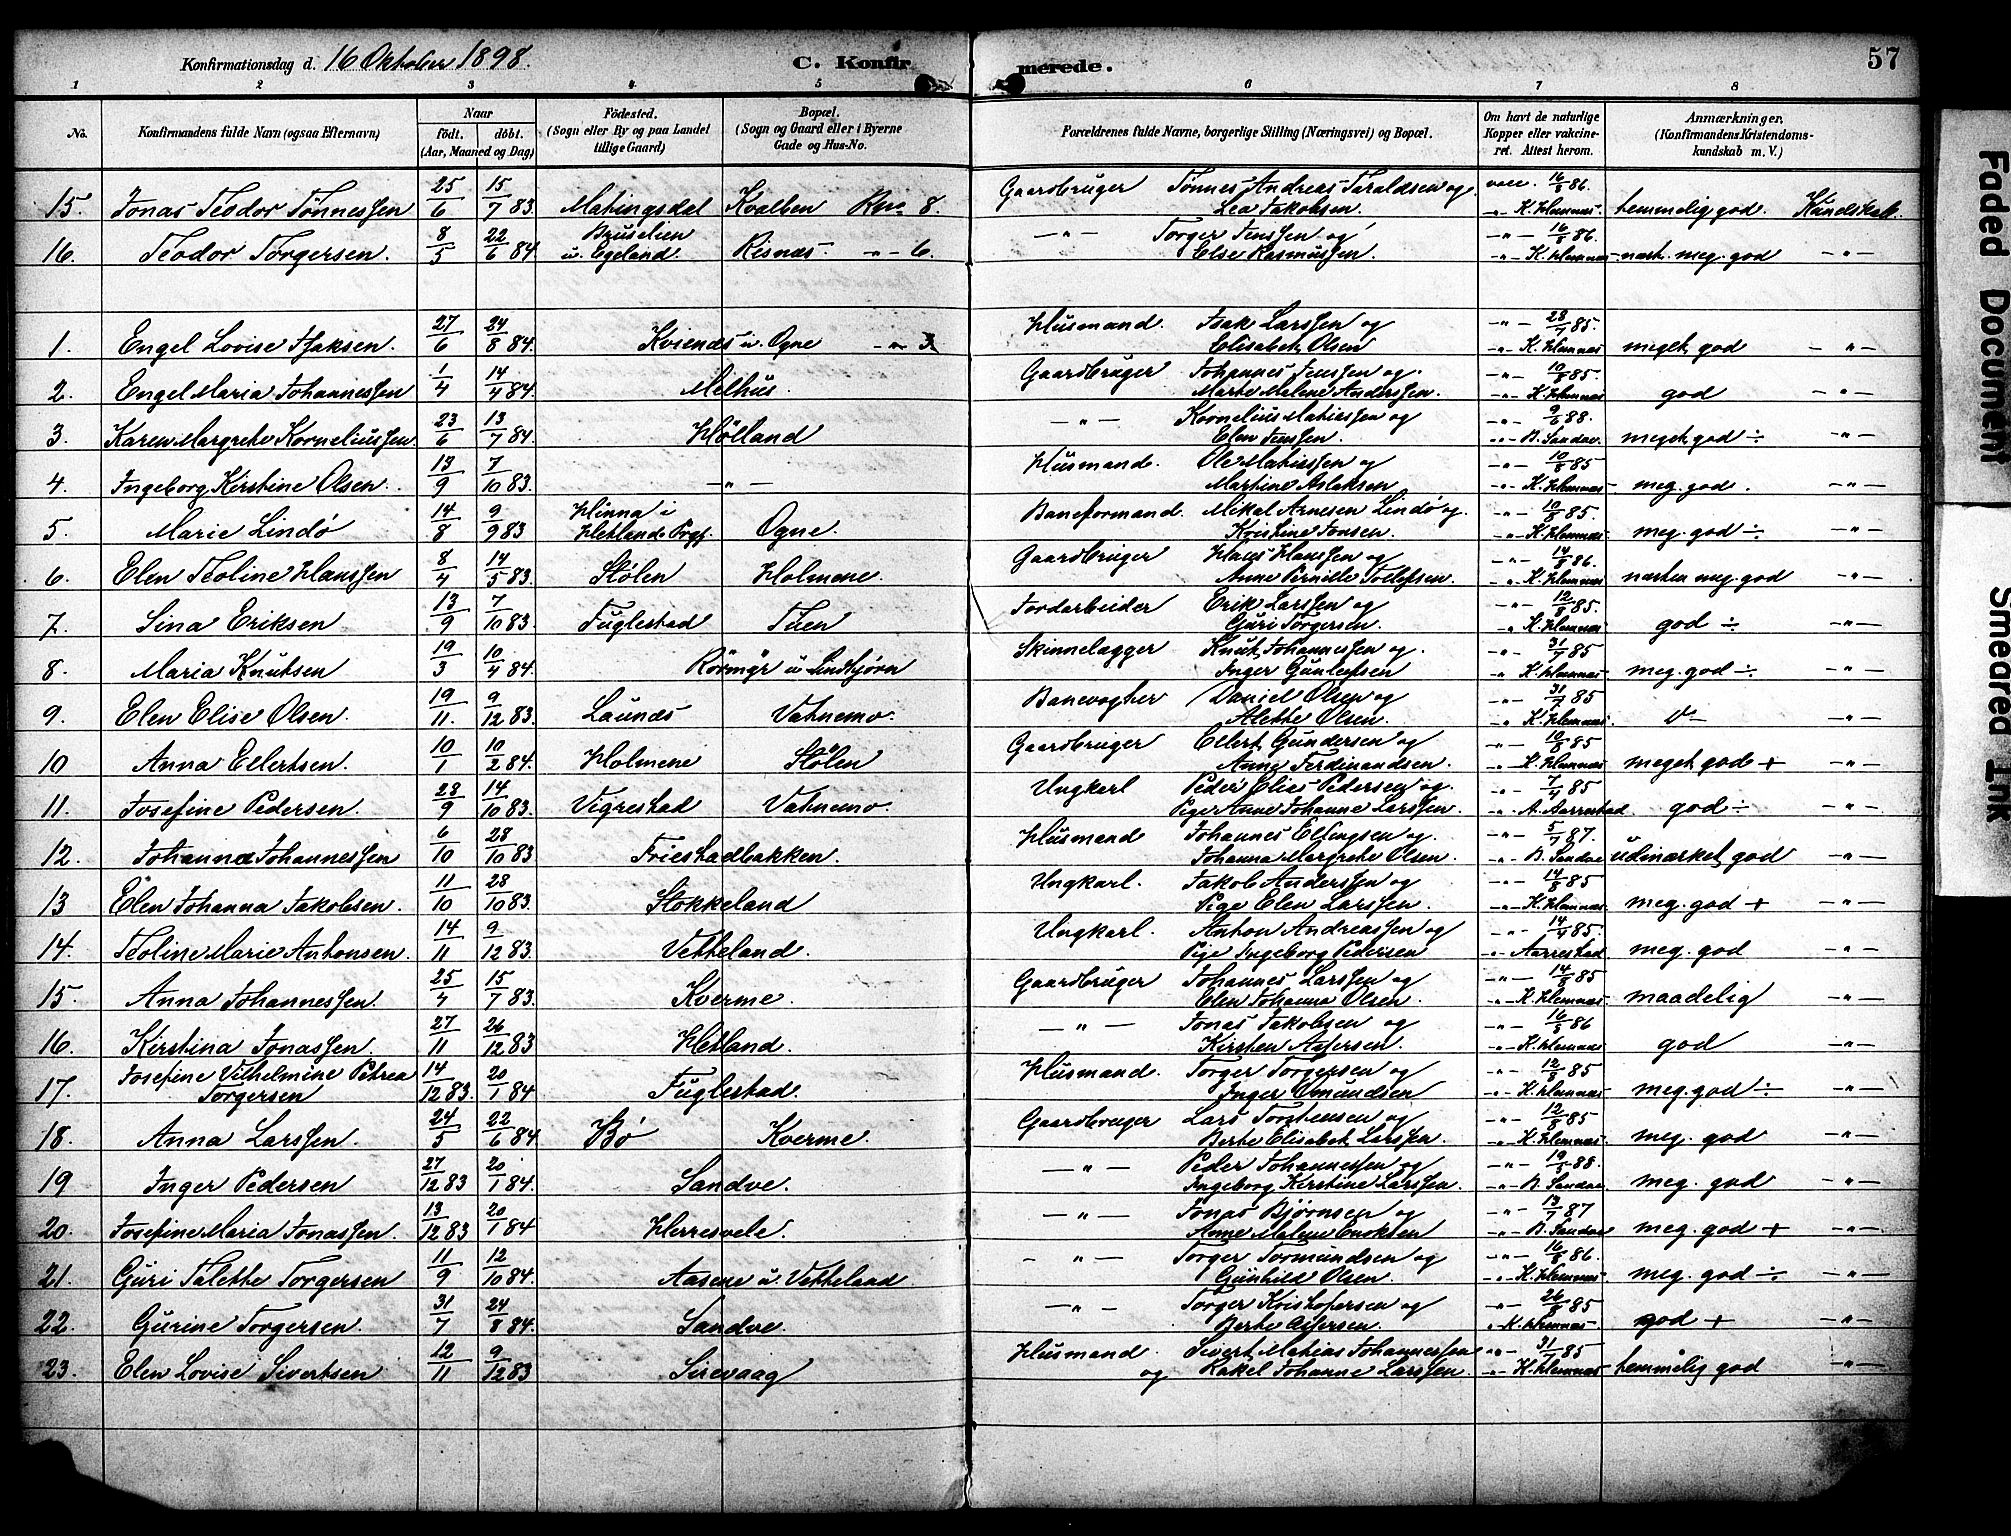 Konfirmationsdag d. 16 Oktober 1898. C. Konfirmerede. 57
1 2 3 4 5 6 7 8
No. Konfirmandens fulde Navn (ogsaa Efternavn) Naar födt. döbt. (Aar, Maaned og Dag) Födested. (Sogn eller By og paa Landet tillige Gaard) Bopæl. (Sogn og Gaard eller i Byerne Gade og Hus-No. Forældrenes fulde Navne, borgerlige Stilling (Næringsvei) og Bopæl. Om havt de naturlige Kopper eller vakcineret. Attest herom. Anmærkninger, (Konfirmandens Kristendomskundskab m. V.)
15. Jonas Teodor Tönnessen 25/6 15/7 83. Matingsdal Kvalben 8. Gaardbruger Tønnes Andreas Taraldsen og Lea Jakobsen. vacc. 16/8 86. K. Hemnæs temmelig god. Kundskab
16. Teodor Torgersen. 8/5 22/6 84. Bruselien u. Egeland. Risnæs - " - 6. - " - Torger Jenssen og Else Rasmussen. - " - 16/8 86. - " - K. Hemnæs næst. meg. god - " -
1. Engel Lovise Isaksen. 27/6 24/8 84. Kvienæs u. Ogne - " - 3. Husmand. Isak Larssen og Elisabet Olsen - " - 28/7 85. - " - K. Hemnæs meget god - " -
2. Engel Maria Johannessen 1/4 14/4 84. Melhus. Gaardbruger Johannes Jenssen og Marte Malene Anderssen. - " - 10/8 85. - " - K. Hemnæs god - " -
3. Karen Margrete Korneliussen. 23/6 13/7 84. Hølland - " - Kornelius Matiassen og Elen Jenssen. - " - 9/6 88. - " - B. Sandve. meget god ÷ - " -
4. Ingeborg Kirstine Olsen. 13/9 7/10 83. - " - Husmand. Ole Matiassen og Martine Aslaksen - " - 10/8 85 - " - K. Hemnæs meg. god. - " -
5. Marie Lindö 14/8 9/9 83 Hinna i Hetlands Prgj. Ogne. Baneformand. Mikal Arnesen Lindö og Kristine Jonsen. - " - 10/8 85. - " - K. Hemnæs meg. god ÷ - " -
6. Elen Teoline Hanssen 8/4 14/5 83. Stølen Holmene. Gaardbruger Hans Hanssen og Anne Pernille Tollefsen. - " - 14/8 86. - " - K. Hemnæs næsten meg. god - " -
7. Sina Eriksen 13/9 7/10 83. Fuglestad Tuen Jordarbeider Erik Larssen og Guri Torgersen. - " - 12/8 85. - " - K. Hemnæs god ÷ - " -
8. Maria Knutsen 19/3 10/4 84. Rörmyr u Lindtjörn Skinnelægger Knut Johannessen og Inger Gunleifsen - " - 31/7 85 - " - K. Hemnæs meg. god ÷ - " -
9. Elen Elise Olsen. 19/11. 9/12 83. Launæs Vatnemo. Banevogter Daniel Olsen og Alette Olsen. - " - 31/7 85 - " - K. Hemnæs. - " -
10 Anna Eilertsen. 10/1 10/2 84. Holmene Stölen Gaardbruger Eilert Gundersen og Anne Ferdinandsen. - " - 10/8 85 - " - K. Hemnæs meget god + - " -
11. Josefine Pedersen 28/9 14/10 83. Vigrestad Vatnemo. Ungkarl Peder Elias Pedersen og Pige Anne Johanne Larssen. - " - 7/4 85. - " - A. Aarrestad god ÷ - " -
12. Johanna Johannessen 6/10 28/10 83 Friestadbakken. Husmand Johannes Ellingsen og Johanna Margrete Olsen. - " - 5/7 87. - " - B. Sandve udmærket god - " -
13 Elen Johanna Jakobsen. 11/10 28/10 83. Stokkeland Ungkarl. Jakob Anderssen og Pige Elen Larssen. - " - 14/8 85 - " - K. Hemnæs. meg. god + - " -
14. Teoline Marie Antonsen. 14/11 9/12 83. Vetteland. Ungkarl. Anton Andreassen og Pige Ingeborg Pedersen - " - 14/4 85. - " - Aarrestad meg. god - " -
15. Anna Johannessen. 25/4 15/7 83. Kverme. Gaardbruger Johannes Larssen og Elen Johanna Olsen. - " - 14/8 85 - " - K. Hemnæs maadelig - " -
16. Kirstina Jonassen. 27/11 26/12 83 Hetland. - " - Jonas Jakobsen og Kirsten Assersen. - " - 16/8 86 - " - K. Hemnæs god - " -
17. Josefine Vilhelmine Petrea Torgersen 14/12 83. 20/1 84 Fuglestad. Husmand. Torger Torgersen og Inger Omundsen - " - 12/8 85 - " - K. Hemnæs meg. god ÷ - " -
18. Anna Larssen. 24/5 22/6 84 Bö Kverme. Gaardbruger Lars Torstensen og Berte Elisabet Larssen. - " - 12/8 85 - " - K. Hemnæs meg. god - " -
19 Inger Pedersen 27/12 83 20/1 84. Sandve. - " - Peder Johannessen og Ingeborg Kirstine Larssen. - " - 88. - " - B. Sandve meg. god - " -
20. Josefine Maria Jonassen. 13/12 83 20/1 84. Herresvele. - " - Jonas Bjørnsen og Anne Malene Enoksen - " - 13/7 87 - " - B. Sandve meg. god + - " -
21. Guri Talette Torgersen 11/9 12/10 84. Aasene u. Vetteland - " - Torger Tormundsen og Gunhild Olsen. - " - 16/8 86. - " - K. Hemnæs meg. god ÷ - " -
22. Gurine Torgersen. 31/7 24/8 84. Sandve. - " - Torger Kristofersen og Berte Assersen. - " - 26/8 85 - " - K. Hemnæs. god + - " -
23. Elen Lovise Sivertsen 12/11 9/12 83 Sirevaag Husmand. Sivert Matias Johannessen og Rakel Johanne Larssen. - " - 31/7 85 - " - K. Hemnæs temmelig god - " -
Faded Document
Smeared Ink